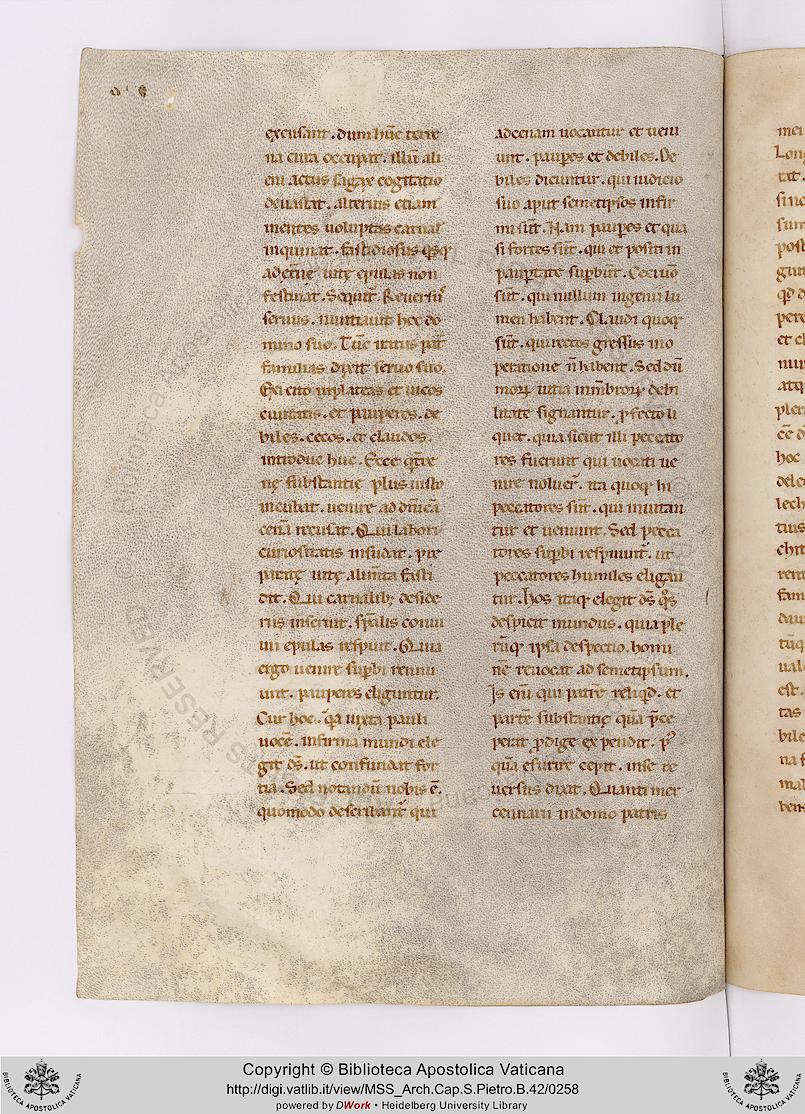 excusant. dum hūc terre
na cura occupat. illū ali
eni actus sagax cogitatio
deuastat. alterius etiam
mentes uoluptas carnal̄
inquinat. fastidiosus q̄sq;
ad etn̄ę uitę epulas non
festinat. Sequit̄. Reuersꝰ
seruus. nuntiauit hec do
mino suo. Tūc iratus pat̄
familias dixit seruo suo.
Exi cito in plateas et uicos
ciuitatis. et pauperes. de
biles. cecos. et claudos.
introduc huc. Ecce q̄ t̄re
nę substantię plus iusto
incubat. uenire ad dn̄icā
cenā recusat. Qui labori
curiositatis insudat. p̄pa
ratę uitę alimta fasti
dit. Qui carnalib; deside
riis inseruit. sp̄alis conui
uii epulas respuit. Quia
ergo uenire supbi rennu
unt. pauperes eliguntur.
Cur hoc. q̄a iuxta pauli
uocē. infirma mundi ele
git d̄s. ut confundat for
tia. Sed notandū nobis ē.
quomodo describant̄ qui
ad cenam uocantur et ueni
unt. paupes et debiles. De
biles dicuntur. qui iudicio
suo aput semetipsos infir
mi sūt. Nam paupes et qua
si fortes sūt. qui et positi in
paup̄tate supbiūt. Ceci uō
sūt. qui nullum ingenii lu
men habent. Claudi quoq;
sūt. qui rectos gressus in o
peratione n̄ habent. Sed dū
morꝝ uitia in mēbrorꝝ debi
litate signantur. pfecto li
quet. quia sicut illi peccato
res fuerunt qui uocati ue
nire noluer̄. ita quoq; hi
peccatores sūt. qui inuitan
tur et ueniunt. Sed pecca
tores supbi respuunt̄. ut
peccatores humiles eligan
tur. Hos itaq; elegit d̄s q̄s
despicit mundus. quia ple
rūq; ipsa despectio. homi
nē reuocat ad semetipsum.
Is eni qui patrē reliq̄d. et
partē substantię quā p̄ce
perat pdige expendit. pꝰ
quā esurire cepit. in se re
uersus dixit. Quanti mer
cennarii in domo patris
Copyright © Biblioteca Apostolica Vaticana
http://digi.vatlib.it/view/MSS_Arch.Cap.S.Pietro.B.42/0258
powered by DWork • Heidelberg University Library